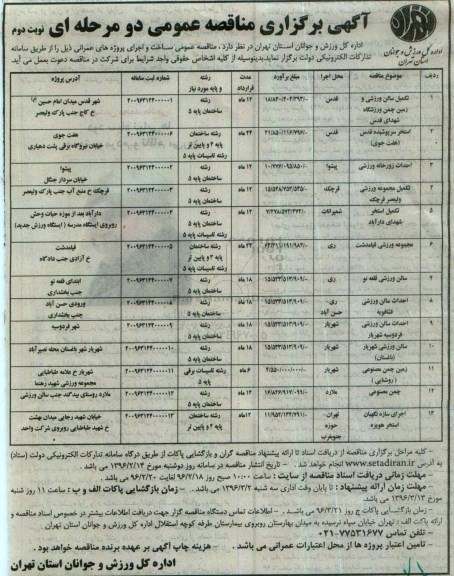 آگهی برگزاری مناقصه عمومی دو مرحله ای نوبت دوم
اداره کل ورزش و جوانان استان تهران در نظر دارد ، مناقصه عمومی ساخت و اجرای پروژه های عمرانی ذیل را از طریق سامانه
تدارکات الکترونیکی دولت برگزار نماید. بدینوسیله از کلیه اشخاص حقوقی واجد شرایط برای شرکت در مناقصه دعوت بعمل می آید
اداره کل ورزش و جوانان
استان تهران
ردیف موضوع مناقصه محل اجرا مبلغ برآورد مدت قرارداد رشته و پایه مورد نیاز شماره ثبت سامانه آدرس پروژه
۱ تکمیل سالن ورزشی و زمین چمن ورزشگاه شهدای قدس قدس ۱۲ ماه رشته ساختمان پایه ۵ ۲۰۰۹۶۳۱۲۴۰۰۰۰۰۱ شهر قدس میدان امام حسین
۲ استخر سرپوشیده قدس (هفت جوی) قدس ۲۴ ماه رشته ساختمان پایه ۴ و پایین تر رشته تاسیسات پایه ۵ هفت جوی خیابان نیروگاه برقی پشت دهیاری
۳ احداث زورخانه ورزشی پیشوا ۱۲ ماه رشته ساختمان پایه ۵ ۲۰۰۹۶۳۱۲۴۰۰۰۰۰۲ پیشوا خیابان سردار جنگل
۴ تکمیل مجموعه ورزشی ولیعصر قرچک قرچک ۱۲ ماه رشته ساختمان پایه ۵ ۲۰۰۹۶۳۱۲۴۰۰۰۰۰۳ قرچک خ منبع آب جنب پارک ولیعصر
۵ تکمیل استخر شهدای دارآباد شمیرانات ۱۲ ماه رشته ساختمان پایه ۵ رشته تاسیسات پایه ۵ ۲۰۰۹۶۳۱۲۴۰۰۰۰۰۴ دارآباد بعد از موزه حیات وحش روبروی ایستگاه مدرسه (ایستگاه ورزش جدید)
۶ مجموعه ورزشی قیامدشت ری ۲۴ ماه رشته ساختمان پایه ۴ و پایین تر رشته تاسیسات پایه ۵ ۲۰۰۹۶۳۱۲۴۰۰۰۰۰۵ قیامدشت خ آزادی جنب دادگاه
۷ سالن ورزشی قلعه نو ری ۱۵/۵۳۳/۵۱۳/۹۰۹ ۱۸ ماه رشته ساختمان پایه ۵ ۲۰۰۹۶۳۱۲۴۰۰۰۰۰۷ ابتدای قلعه نو جنب بخشداری
۸ احداث سالن ورزشی فشافویه ری- حسن آباد ۱۵/۵۳۳/۵۱۳/۹۰۹ ۱۸ ماه رشته ساختمان پایه ۵ ۲۰۰۹۶۳۱۲۴۰۰۰۰۰۸ ورودی حسن آباد جنب بخشداری
۹ احداث سالن ورزشی فردوسیه شهریار شهریار ۱۵/۵۳۳/۵۱۳/۹۰۹ ۱۸ ماه رشته ساختمان پایه ۵ ۲۰۰۹۶۳۱۲۴۰۰۰۰۰۹ شهر فردوسیه
۱۰ سالن ورزشی شهریار (باغستان) شهریار ۱۵/۵۳۳/۵۱۳/۹۰۹ ۱۸ ماه رشته ساختمان پایه ۵ ۲۰۰۹۶۳۱۲۴۰۰۰۰۱۰ شهریار شهر باغستان محله نصیرآباد
۱۱ زمین چمن مصنوعی (روشنایی) شهریار ۶ ماه رشته تاسیسات برقی پایه ۵ ۲۰۰۹۶۳۱۲۴۰۰۰۰۱۱ شهریار خ علامه طباطبایی مجموعه ورزشی شهید رهنما
۱۲ چمن مصنوعی ملارد ۱۲ ماه رشته ساختمان پایه ۵ ۲۰۰۹۶۳۱۲۴۰۰۰۰۱۲ ملارد روستای بیدگنه جنب سالن ورزشی
۱۳ اجرای سازه نگهبان استخر هویزه تهران- حوزه جنوبغرب ۱۲ ماه رشته ساختمان پایه ۵ ۲۰۰۹۶۳۱۲۴۰۰۰۰۱۳ خیابان شهید رجایی میدان بهشت خ شهید طباطبایی روبروی شرکت واحد
- کلیه مراحل برگزاری مناقصه از دریافت اسناد تا ارائه پیشنهاد مناقصه گران و بازگشایی پاکات از طریق درگاه سامانه تدارکات الکترونیکی دولت (ستاد)
به آدرس www.setadiran.ir انجام خواهد شد. - تاریخ انتشار مناقصه در سامانه روز دوشنبه مورخ ۱۳۹۶/۲/۱۴ می باشد.
- مهلت زمانی دریافت اسناد مناقصه از سایت : ساعت ۱۰:۰۰ صبح روز ۹۶/۲/۱۸ لغایت ۹۶/۲/۲۰ می باشد
- مهلت زمان ارائه پیشنهاد : تا پایان وقت اداری سه شنبه ۱۳۹۶/۳/۲ می باشد. - زمان بازگشایی پاکات الف و ب : ساعت ۱۱ روز شنبه
مورخ ۱۳۹۶/۳/۱۳ می باشد
- زمان بازگشایی پاکات ج روز ۹۶/۳/۲۱ می باشد. - اطلاعات تماس دستگاه مناقصه گزار جهت دریافت اطلاعات بیشتر در خصوص اسناد مناقصه و
ارائه پاکات الف : تهران خیابان سپاه نرسیده به میدان بهارستان روبروی بیمارستان طرفه کوچه استقلال اداره کل ورزش و جوانان استان تهران
- تلفن تماس ۷۷۵۳۱۶۷۷-۰۲۱
- تامین اعتبار پروژه ها از محل اعتبارات عمرانی می باشد. - هزینه چاپ آگهی بر عهده برنده مناقصه خواهد بود.
اداره کل ورزش و جوانان استان تهران